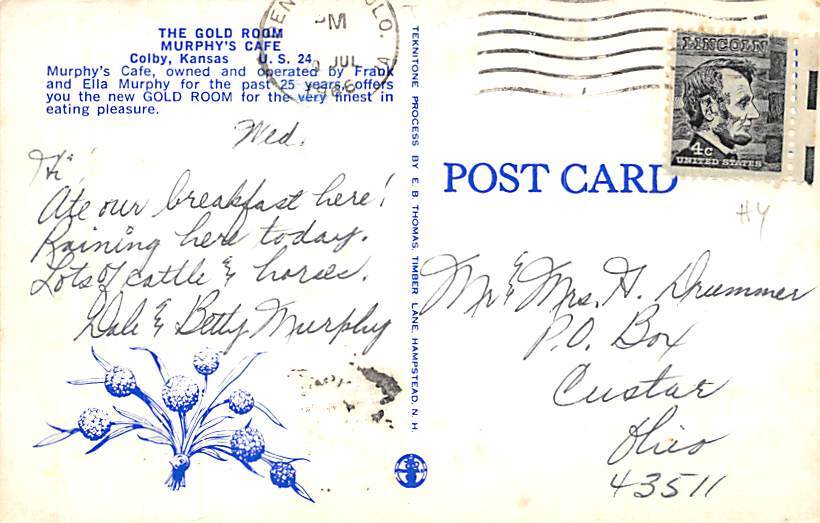 THE GOLD ROOM
MURPHY'S CAFE
Colby, Kansas U. S. 24
Murphy's Cafe, owned and operated by Frank
and Ella Murphy for the past 25 years, offers
you the new GOLD ROOM for the very finest in
eating pleasure.
PM
JUL
1966
OLO.
LINCOLN
4c
UNITED STATES
Wed.
Hi
Ate our breakfast here!
Raining here today.
Lots of cattle & horses.
Dale & Betty Murphy
TEKNITONE PROCESS BY E. B. THOMAS, TIMBER LANE, HAMPSTEAD, N. H.
POST CARD
HY
Mr & Mrs. H. Drummer
P.O. Box
Custar
Ohio
43511